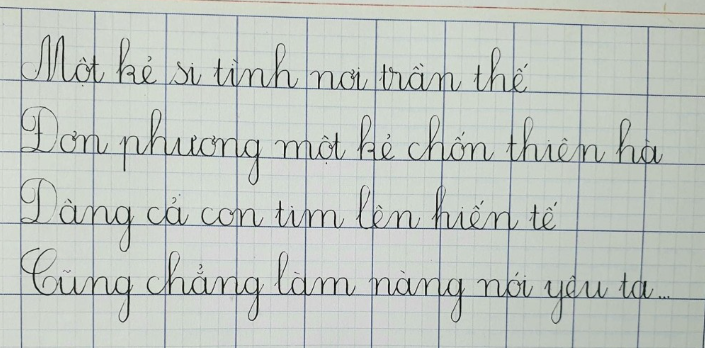 Một kẻ si tình nơi trần thế
Đơn phương một kẻ chốn thiên hà
Dâng cả con tim lên hiến tế
Cũng chẳng làm nàng nói yêu ta...